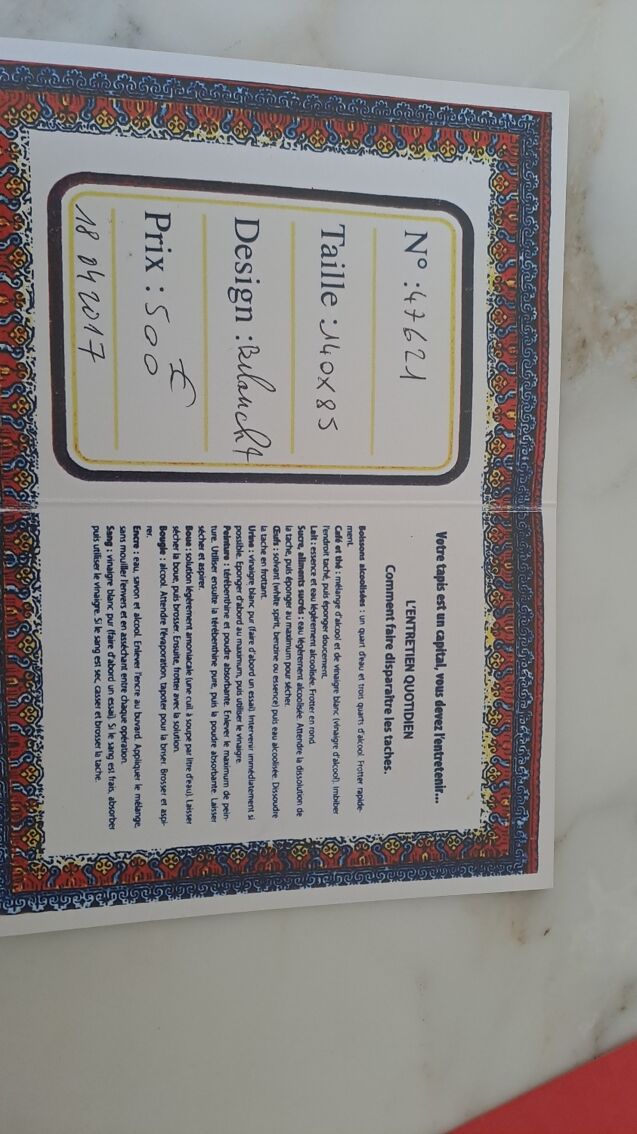 N° : 47621
Taille : 140x85
Design : Belouch
Prix : 500 €
18 04 2017
Votre tapis est un capital, vous devez l'entretenir...
L'ENTRETIEN QUOTIDIEN
Comment faire disparaître les taches.
Boissons alcoolisées : un quart d'eau et trois quarts d'alcool. Frotter rapide-
ment.
Café et thé : mélange d'alcool et de vinaigre blanc (vinaigre d'alcool). Imbiber
l'endroit taché, puis éponger doucement.
Lait : essence et eau légèrement alcoolisée. Frotter en rond.
Sucre, aliments sucrés : eau légèrement alcoolisée. Attendre la dissolution de
la tache, puis éponger au maximum pour sécher.
Œufs : solvant (white spirit, benzine ou essence) puis eau alcoolisée. Dissoudre
la tache en frottant.
Urine : vinaigre blanc pur (faire d'abord un essai). Intervenir immédiatement si
possible. Éponger d'abord au maximum, puis utiliser le vinaigre.
Peinture : térébenthine et poudre absorbante. Enlever le maximum de pein-
ture. Utiliser ensuite la térébenthine pure, puis la poudre absorbante. Laisser
sécher et aspirer.
Boue : solution légèrement amoniacale (une cuil. à soupe par litre d'eau). Laisser
sécher la boue, puis brosser. Ensuite, frotter avec la solution.
Bougie : alcool. Attendre l'évaporation, tapoter pour la briser. Brosser et aspi-
rer.
Encre : eau, savon et alcool. Enlever l'encre au buvard. Appliquer le mélange,
sans mouiller l'envers et en asséchant entre chaque opération.
Sang : vinaigre blanc pur (faire d'abord un essai). Si le sang est frais, absorber
puis utiliser le vinaigre. Si le sang est sec, casser et brosser la tache.